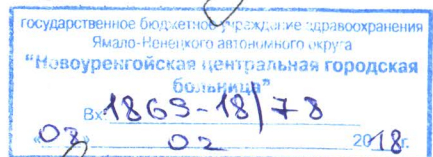 государственное бюджетное учреждение здравоохранения
Ямало-Ненецкого автономного округа
"Новоуренгойская центральная городская
больница"
Вх. 1869-18/78
«02» 02 2018г.